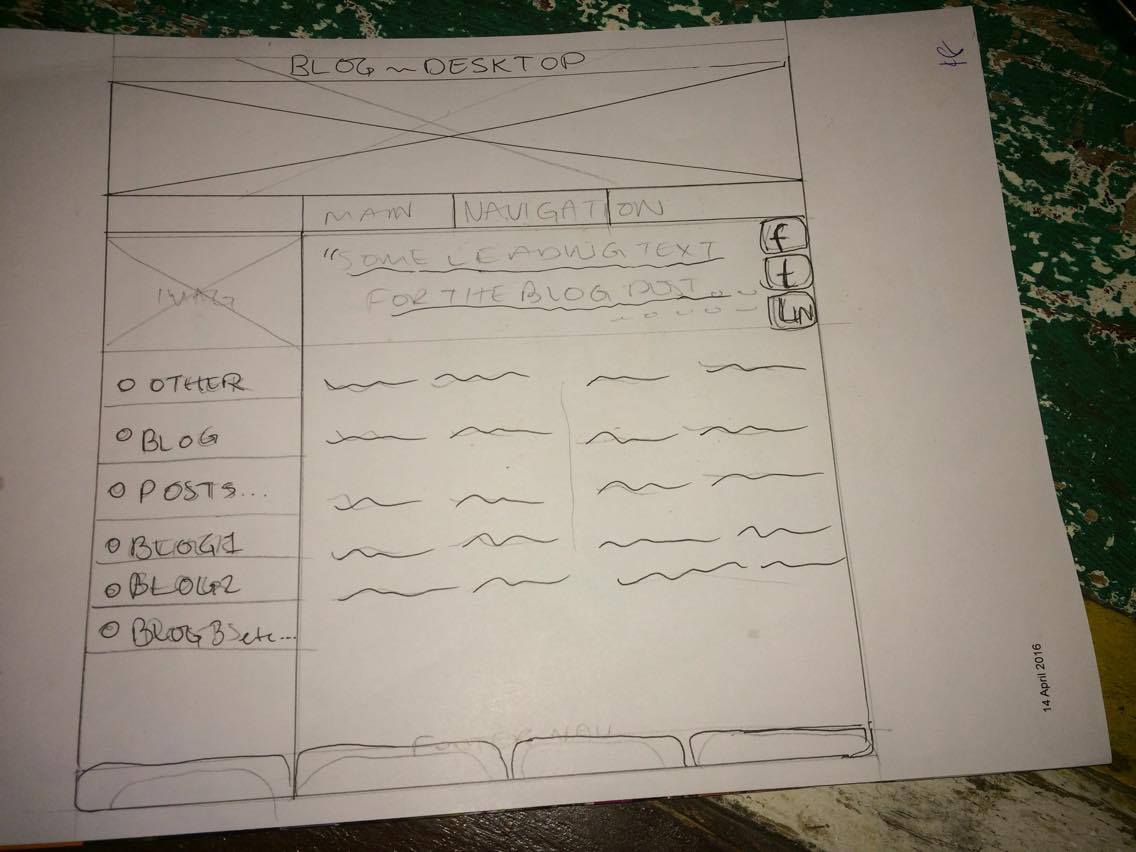 BLOG ~ DESKTOP
MAIN NAVIGATION
"SOME LEADING TEXT
FOR THE BLOG POST
f
t
LN
IMAGE
O OTHER
O BLOG
O POSTS...
O BLOG1
O BLOG2
O BLOG3 etc...
FOOTER NAV
14 April 2016